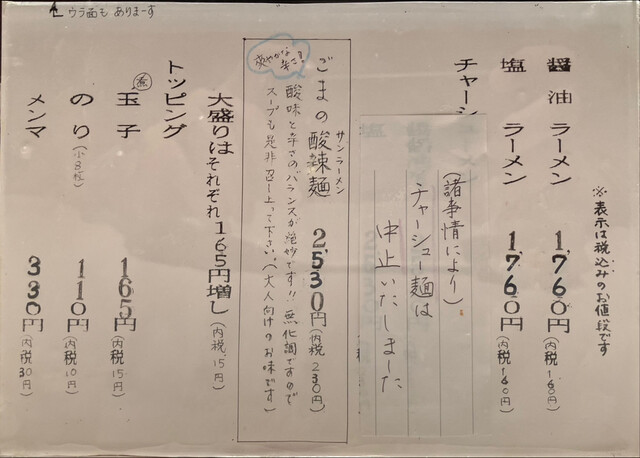 ウラ面も ありまーす
※表示は税込みのお値段です
醤油ラーメン 1,760円(内税160円)
塩ラーメン 1,760円(内税160円)
チャーシ
(諸事情により)
チャーシュー麺は
中止いたしました
サンラーメン
ごまの酸辣麺 2,530円(内税230円)
爽やかな
辛さ!
酸味と辛さのバランスが絶妙です!!無化調ですので
スープも是非召し上って下さい。(大人向けのお味です)
大盛りはそれぞれ165円増し(内税15円)
トッピング
煮玉子 165円(内税15円)
のり(小8枚) 110円(内税10円)
メンマ 330円(内税30円)